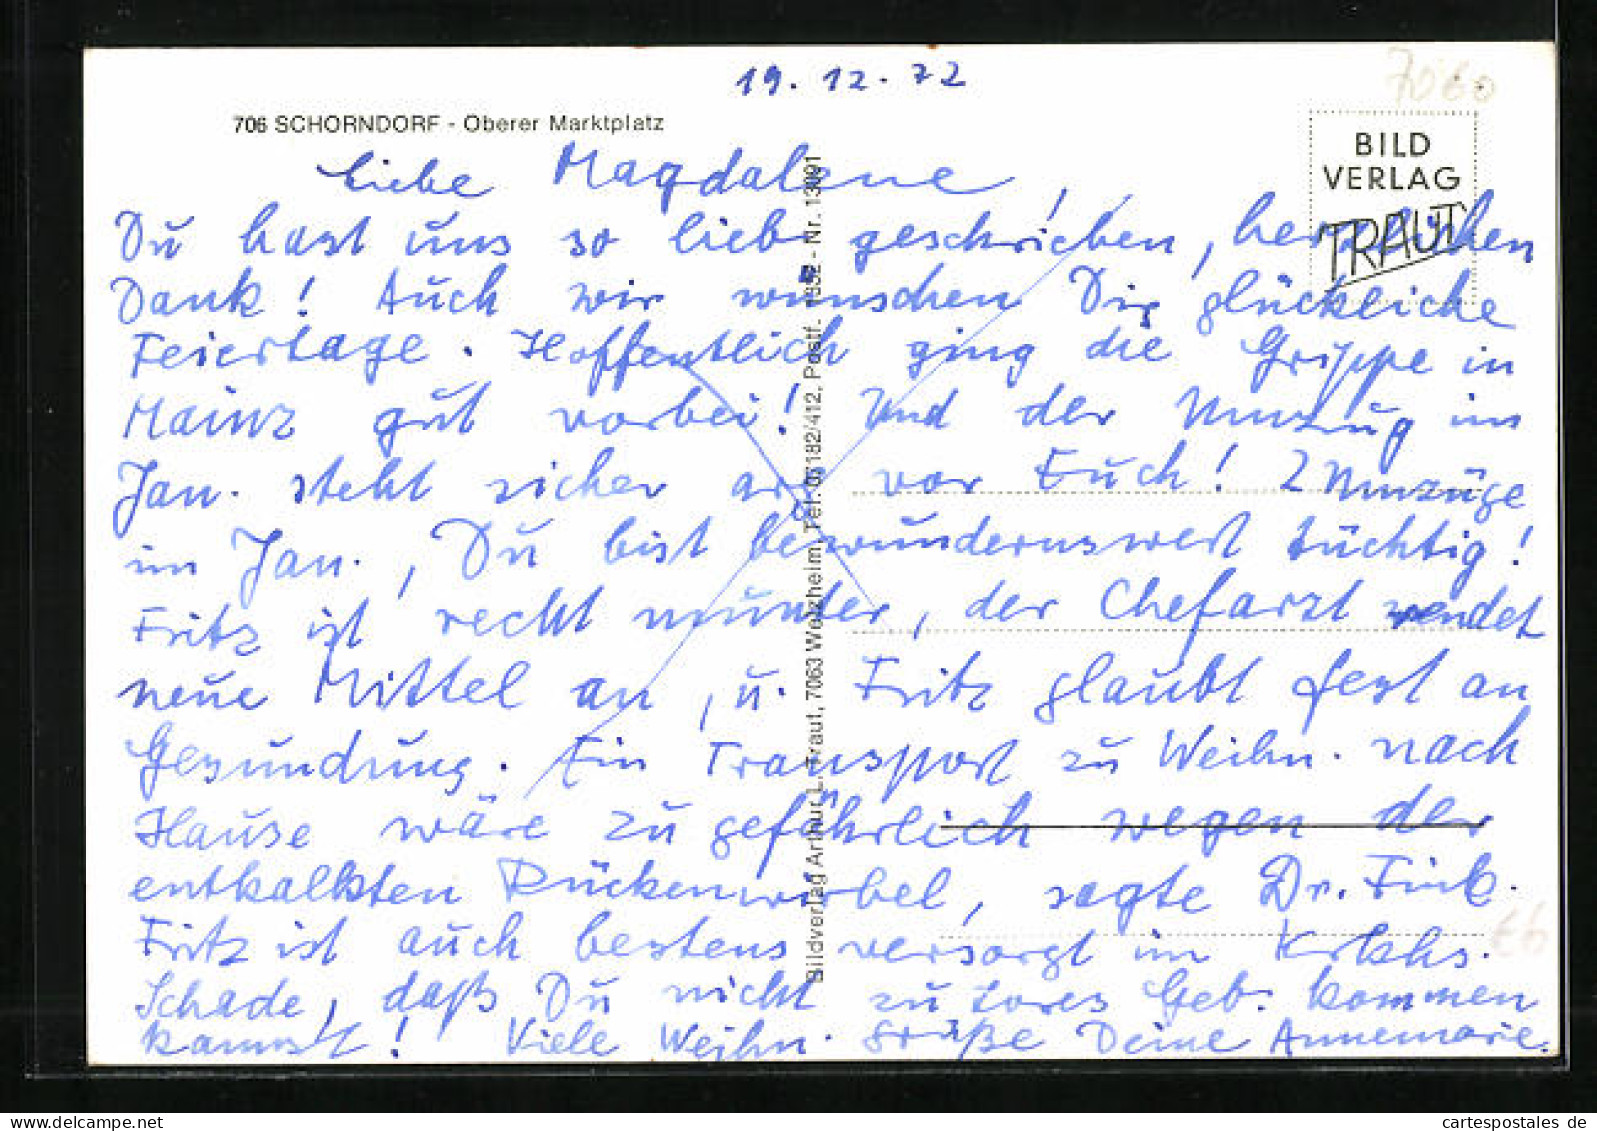 19. 12. 72
7060
706 SCHORNDORF - Oberer Marktplatz
BILD
VERLAG
TRAUT
Liebe Magdalene
Du hast uns so lieb geschrieben, herzlichen
Dank! Auch wir wünschen Dir glückliche
Feiertage. Hoffentlich ging die Grippe in
Mainz gut vorbei! Und der Umzug im
Jan. steht sicher arg vor Euch! 2 Umzüge
im Jan., Du bist bewundernswert tüchtig!
Fritz ist recht munter, der Chefarzt wendet
neue Mittel an, u. Fritz glaubt fest an
Gesundung. Ein Transport zu Weihn. nach
Hause wäre zu gefährlich wegen der
entkalkten Rückenwirbel, sagte Dr. Fink.
Fritz ist auch bestens versorgt im Krkhs.
Schade, daß Du nicht zu Geb. kommen
kannst! Viele Weihn. Grüße Deine Annemarie.
Bildverlag Arthur L. Traut, 7063 Welzheim, Tel. 07182/412, Postf. 1652 - Nr. 13091
cartespostales de